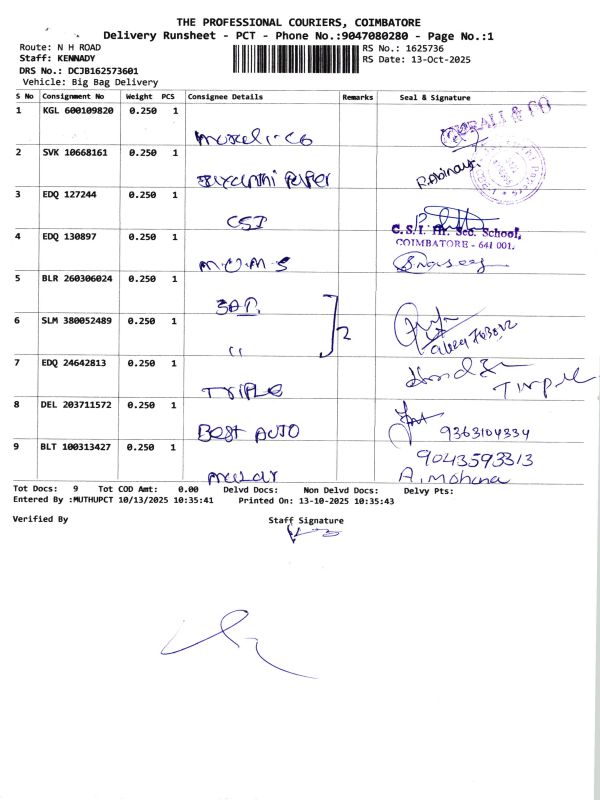 THE PROFESSIONAL COURIERS, COIMBATORE
Delivery Runsheet - PCT - Phone No.:9047080280 - Page No.:1
Route: N H ROAD
RS No.: 1625736
Staff: KENNADY
RS Date: 13-Oct-2025
DRS No.: DCJB162573601
Vehicle: Big Bag Delivery
S No Consignment No Weight PCS Consignee Details Remarks Seal & Signature
1 KGL 600109820 0.250 1
& CO
2 SVK 10668161 0.250 1
Jayanthi Paper R.Abinaya
3 EDQ 127244 0.250 1
CSI
C.S.I. Hr. Sec. School,
COIMBATORE - 641 001.
4 EDQ 130897 0.250 1
M.O.M.S
5 BLR 260306024 0.250 1
2
6 SLM 380052489 0.250 1
"
7 EDQ 24642813 0.250 1
TRIPLE
8 DEL 203711572 0.250 1
BEST AUTO 9363104334
9 BLT 100313427 0.250 1
9043593313
A. Mohana
Tot Docs: 9 Tot COD Amt: 0.00 Delvd Docs: Non Delvd Docs: Delvy Pts:
Entered By :MUTHUPCT 10/13/2025 10:35:41 Printed On: 13-10-2025 10:35:43
Verified By Staff Signature